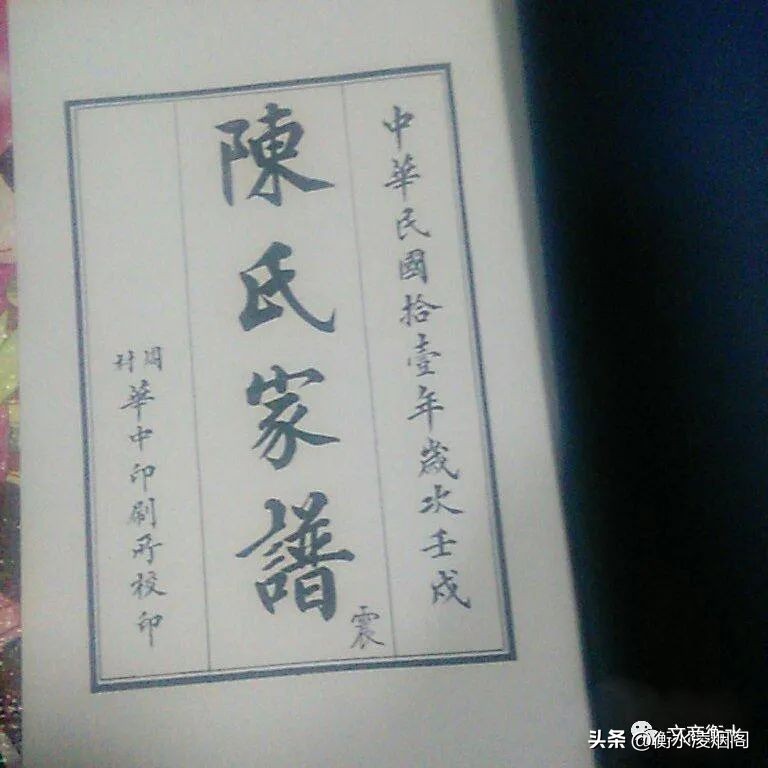 中華民國拾壹年歲次壬戌
陳氏家譜
震
周村
華中印刷所校印
文商衡水
头条 @衡水凌烟阁